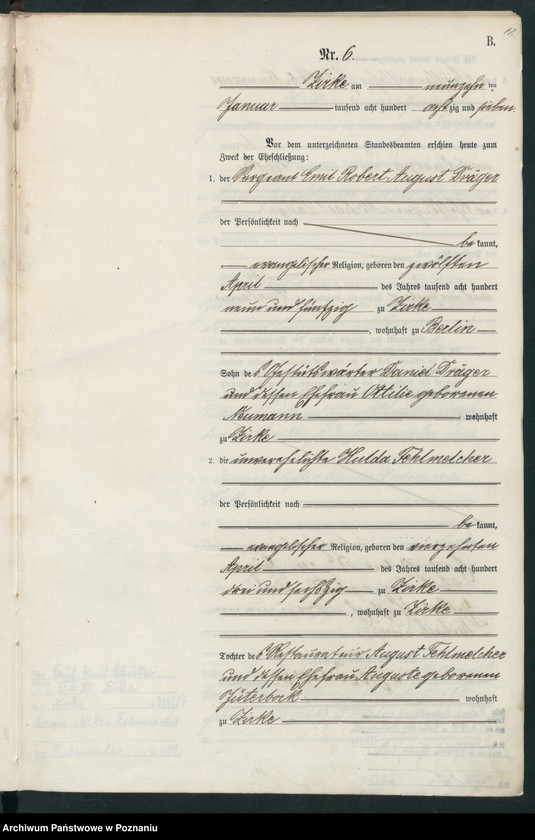 B.
Nr. 6.
Zirke am neunzehn ten
Januar tausend acht hundert achtzig und sieben.
Vor dem unterzeichneten Standesbeamten erschien heute zum
Zweck der Eheschließung:
1. der Sergeant Emil Robert August Dräger
der Persönlichkeit nach
be kannt,
evangelischer Religion, geboren den zwölften
April des Jahres tausend acht hundert
neun und fünfzig zu Zirke
, wohnhaft zu Berlin
Sohn des Gestütswärter Daniel Dräger
und dessen Ehefrau Ottilie geborenen
Neumann wohnhaft
zu Zirke
2. die unverehelichte Hulda Fehlmelcher
der Persönlichkeit nach
be kannt,
evangelischer Religion, geboren den vierzehnten
April des Jahres tausend acht hundert
drei und sechszig zu Zirke
, wohnhaft zu Zirke
Tochter des Restaurateur August Fehlmelcher
und dessen Ehefrau Auguste geborenen
Jüterbock wohnhaft
zu Zirke
Archiwum Państwowe w Poznaniu